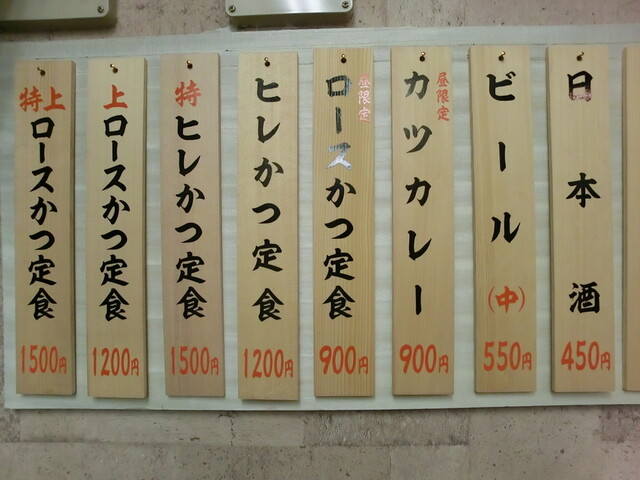 特上ロースかつ定食
1500円
上ロースかつ定食
1200円
特ヒレかつ定食
1500円
ヒレかつ定食
1200円
昼限定
ロースかつ定食
900円
昼限定
カツカレー
900円
ビール(中)
550円
日本酒
450円